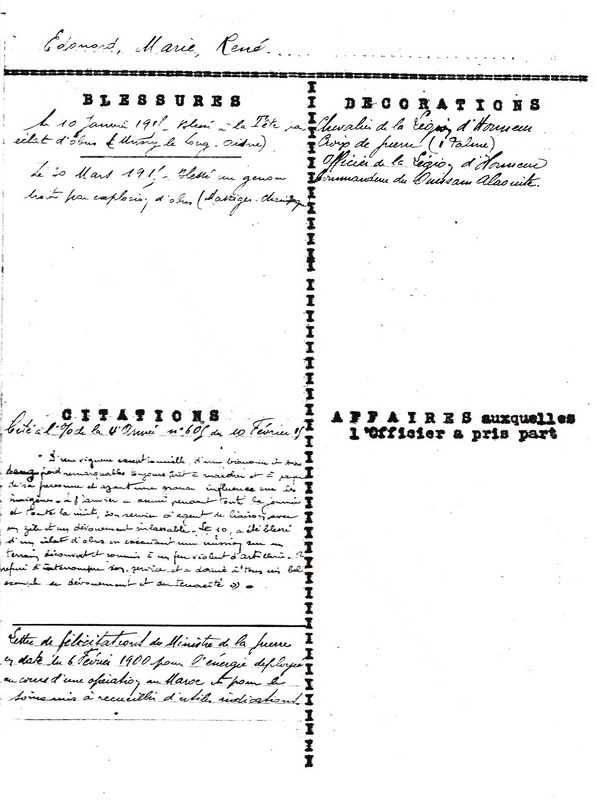 Edouard, Marie, René.
BLESSURES
Le 10 Janvier 1915 - Blessé à la Tête par
éclat d'obus ( le long - Aisne)
Le 20 Mars 1915 - Blessé au genou
par explosion d'obus (Massiges - Champagne
DECORATIONS
Chevalier de la Légion d'Honneur
Croix de guerre (1 Palme)
Officier de la Légion d'Honneur
Commandeur du Ouissam Alaouite.
CITATIONS
Cité à l'O/ de la 4e Armée n° 605 du 10 Février 15
" D'une vigueur exceptionnelle, d'une bravoure et
remarquables toujours prêt à marcher et à payer
de sa personne et ayant une grande influence sur les
indigènes - a assuré pendant toute la journée
et toute la nuit, son service d'agent de liaison avec
un zèle et un dévouement inlassable. Le 10, a été blessé
d'un éclat d'obus en exécutant une mission sur un
terrain découvert et soumis à un feu violent d'artillerie. A
refusé d'interrompre son service et a donné à tous un bel
exemple de dévouement et de tenacité ».
Lettre de félicitations du Ministre de la guerre
en date du 6 Février 1900 pour l'énergie deployée
au cours d'une opération au Maroc et pour le
soins mis à recueillir d'utiles indications.
AFFAIRES auxquelles
l'Officier a pris part